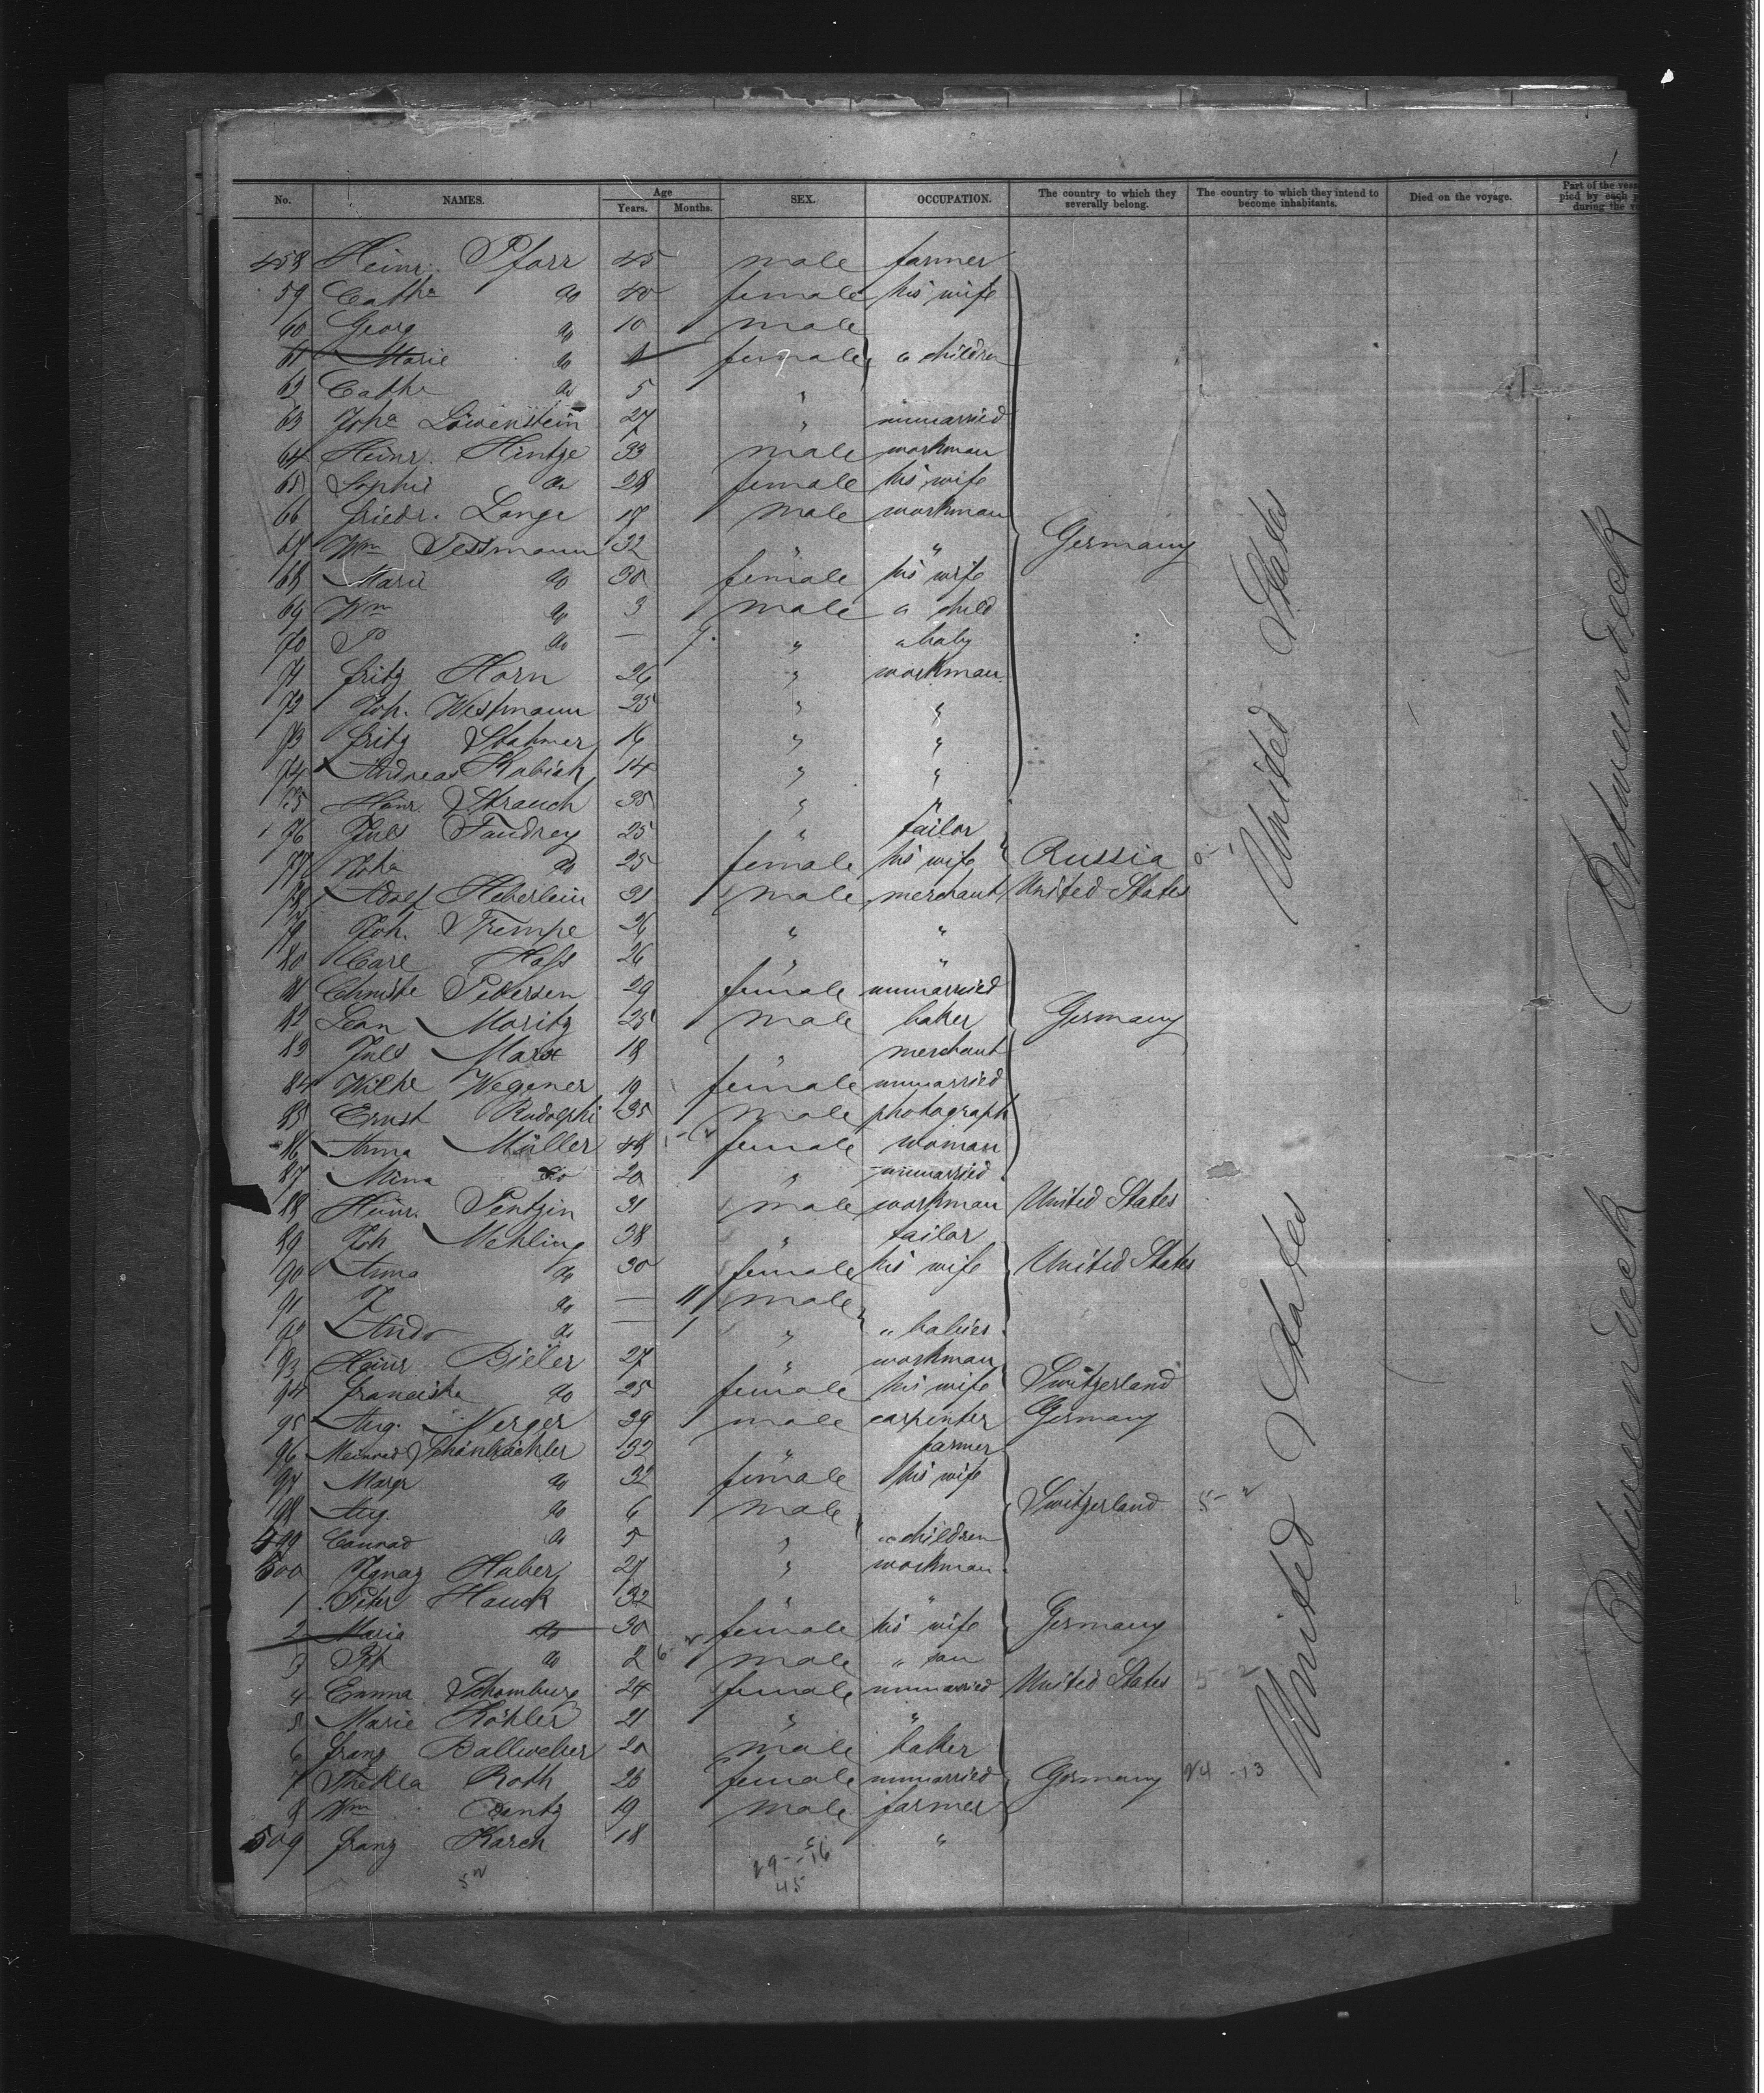 No. NAMES. Age Years. Months. SEX. OCCUPATION. The country to which they severally belong. The country to which they intend to become inhabitants. Died on the voyage. Part of the
pied by each
during the
458 Heinr. Pforr 45 male farmer
59 Cathe do 40 female his wife
60 Georg do 10 male
61 Marie do female " children
62 Cathe do 5 "
63 Johe Löwenstein 27 " unmarried
64 Heinr. Hintze 33 male workman
65 Sophie do 28 female his wife
66 Friedr. Lange 17 male workman
67 Wm Tessmann 32 " " Germany
68 Marie do 30 female his wife
69 Wm do 3 male a child
70 P do — 7 " a baby
71 Fritz Horn 26 " workman
72 Joh. Westmann 25 " "
73 Fritz Stahmer 16 " "
74 Andreas Kubiak 14 " "
75 Heinr. Strauch 35 " "
76 Juls Taudrey 25 " tailor
77 do 25 female his wife Russia
78 Adolf Heberlein 31 male merchant United States
79 Joh. Trempe 26 " "
80 Carl Hass 26 " "
81 Christe Petersen 29 female unmarried
82 Leon Moritz 25 male baker Germany
83 Juls Marx 18 " merchant
84 Wilhe Wegener 19 female unmarried
85 Ernst Rudolphi 35 male photograph
86 Anna Müller 48 female woman
87 Mina do 20 " unmarried
88 Heinr. Pentzin 31 male workman United States
89 Joh Mehling 38 " tailor
90 Anna do 30 female his wife United States
91 J do — 11 male
92 Andr do — 1 " " babies
93 Heinr Bieler 27 " workman
94 Franciska do 25 female his wife Switzerland
95 Aug. Nerger 39 male carpenter Germany
96 Meinrad Schönbächler 32 " farmer
97 Margr do 32 female his wife
98 Aug. do 6 male Switzerland
499 Conrad do 5 " " children
500 Ignaz Huber 27 " workman
1 Peter Hauck 32 " "
2 Maria do 30 female his wife Germany
3 Pet do 2 male " son
4 Emma Schomburg 24 female unmarried United States
5 Marie Köhler 21 " "
6 Franz Ballweber 20 male baker
7 Thekla Roth 26 female unmarried Germany 24 -13
8 Wm 19 male farmer
509 Franz Karch 18 " "
29--16
45
United States
United States
Between Deck
Between Deck